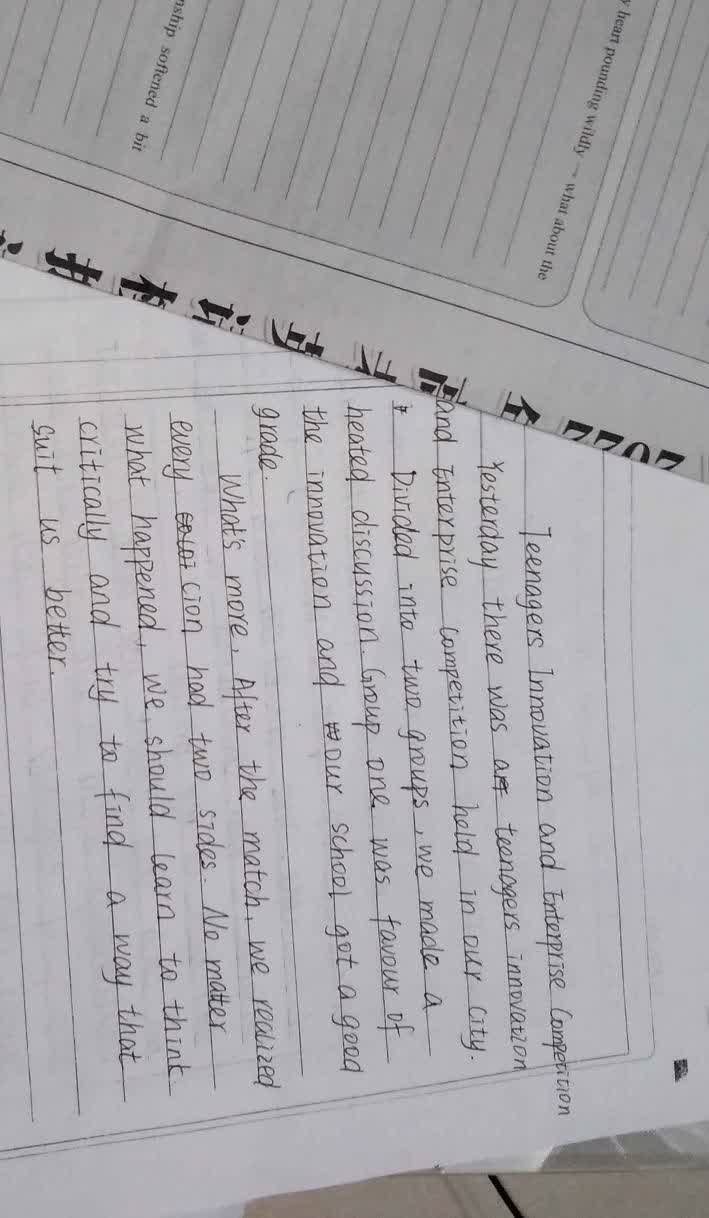 y heart pounding wildly — what about the
nship softened a bit
2022
全
Teenagers Innovation and Enterprise Competition
Yesterday there was a teenagers innovation
and Enterprise Competition hold in our city.
Divided into two groups, we made a
heated discussion. Group one was favour of
the innovation and our school got a good
grade.
What's more, After the match, we realized
every cion had two sides. No matter
what happened, we should learn to think
critically and try to find a way that
suit us better.